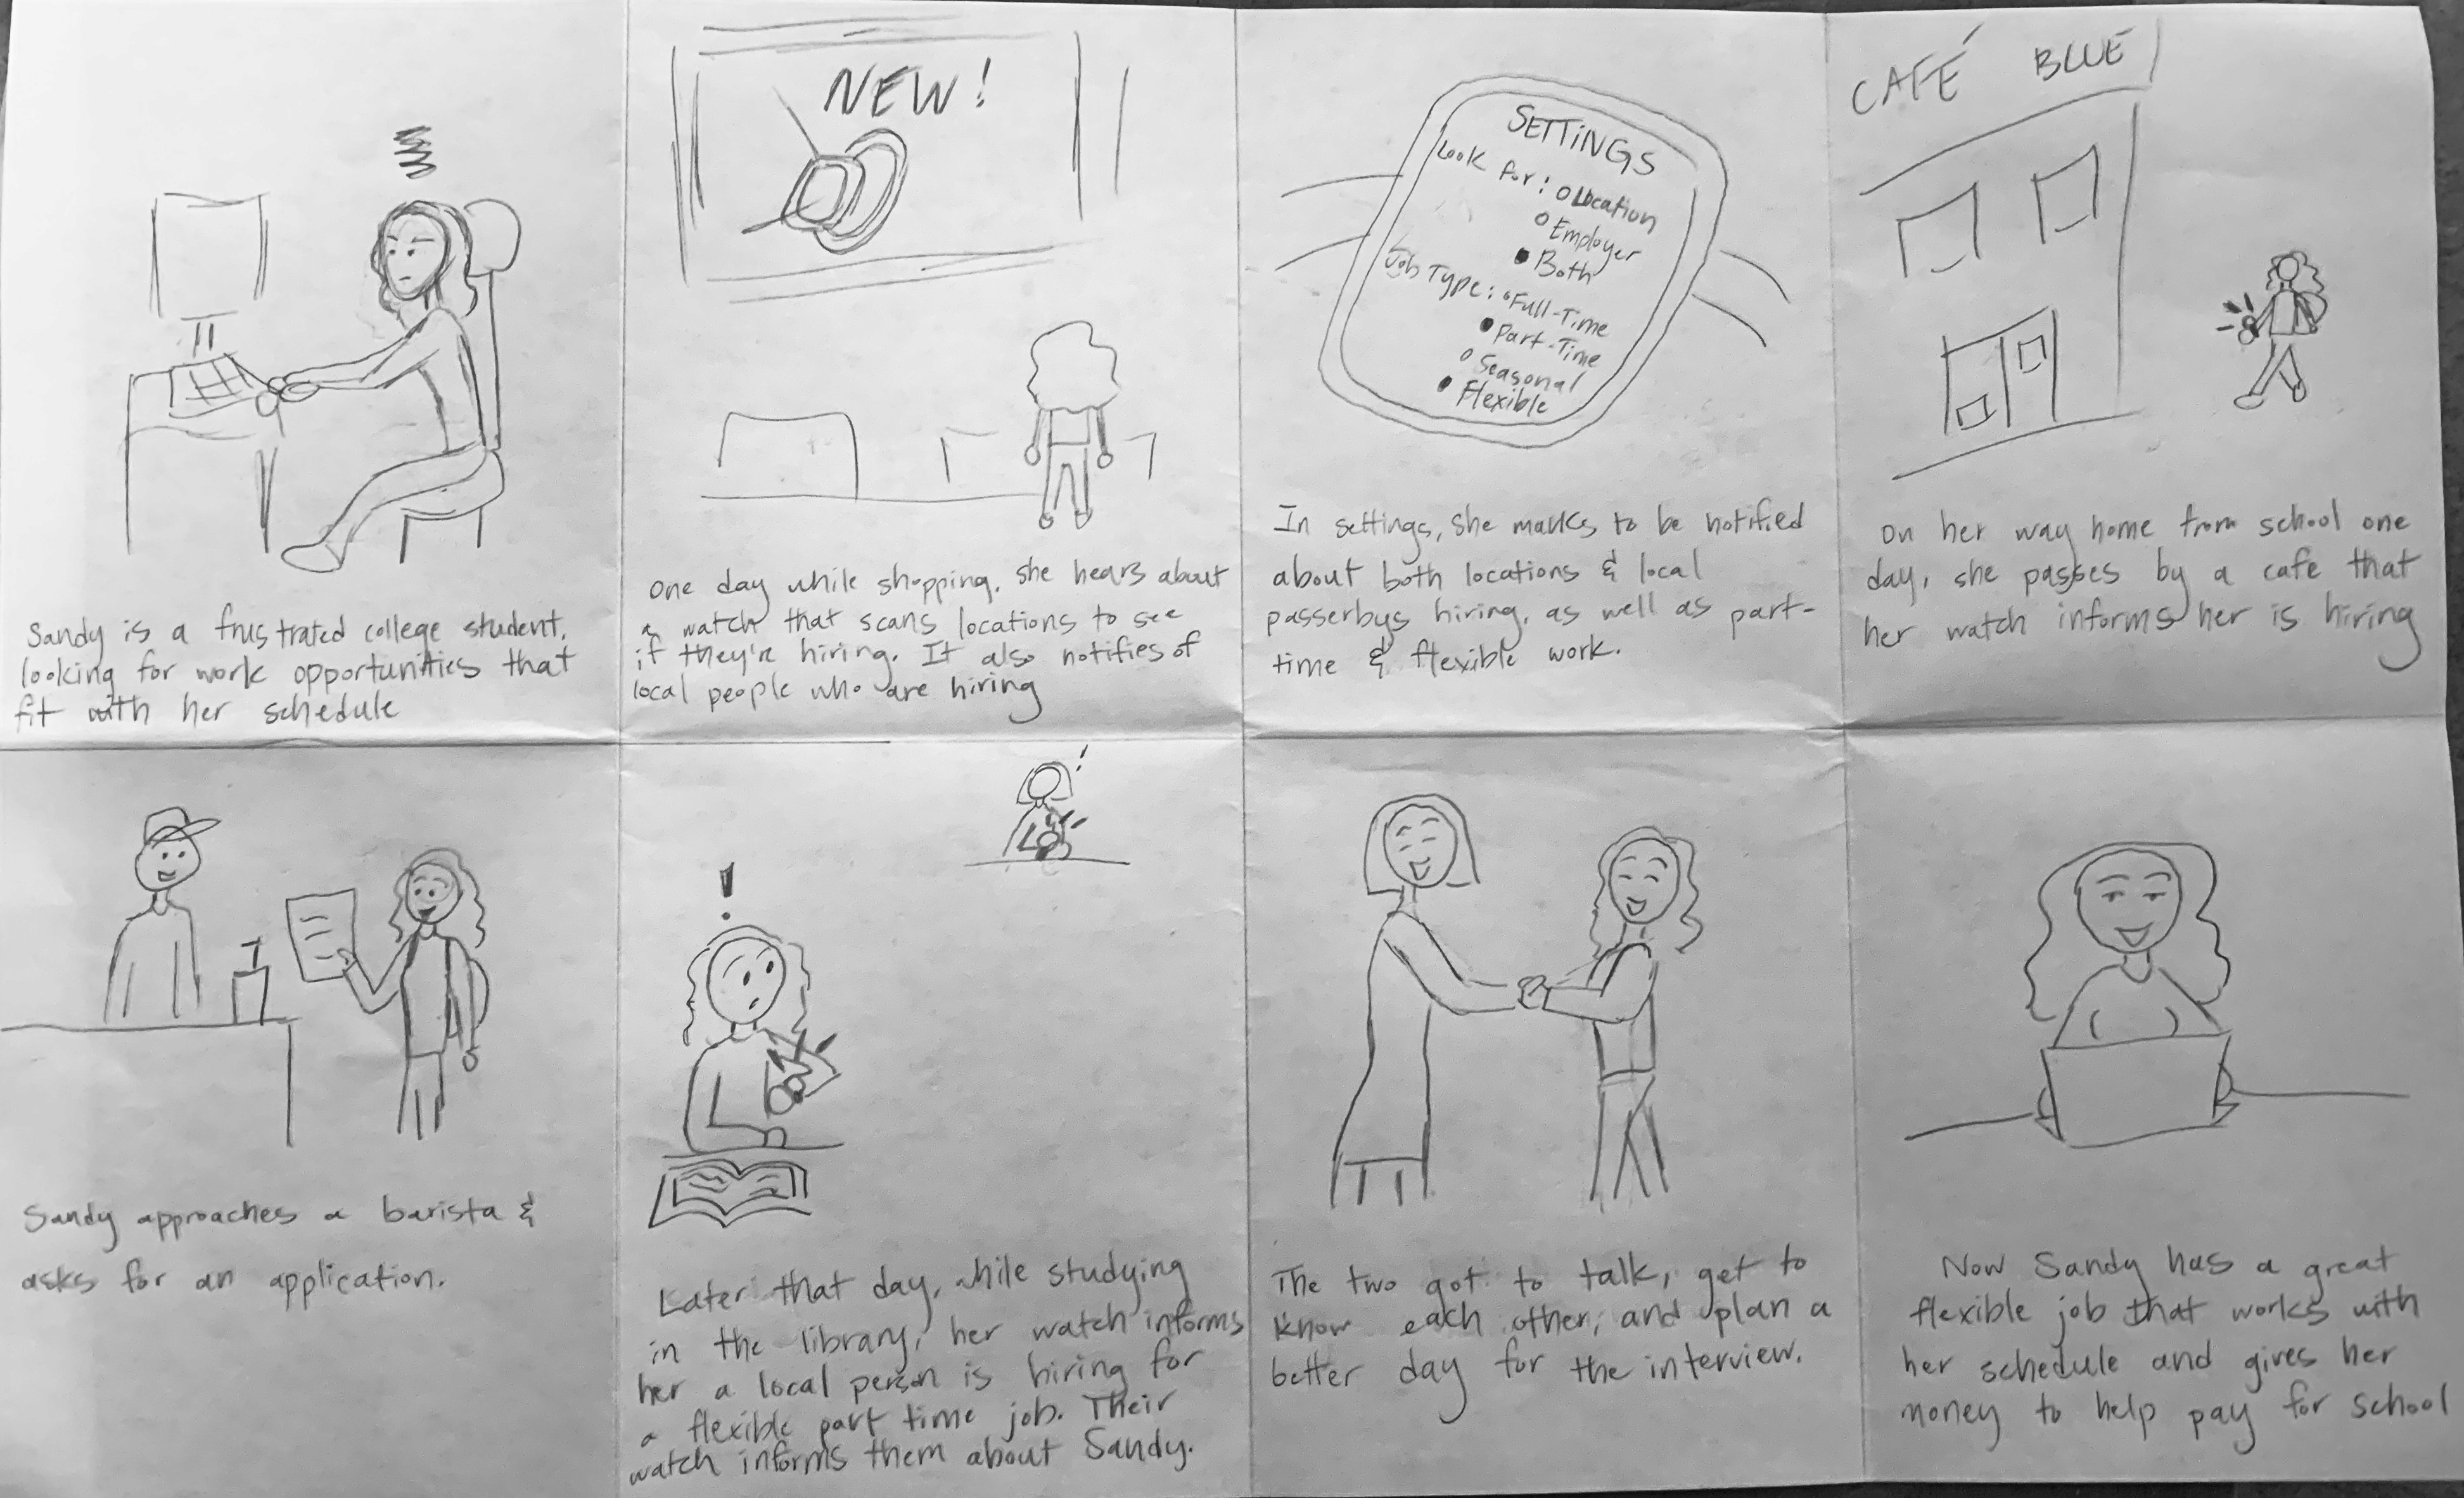 Sandy is a frustrated college student,
looking for work opportunities that
fit with her schedule
NEW!
One day while shopping, she hears about
a watch that scans locations to see
if they're hiring. It also notifies of
local people who are hiring
SETTINGS
Look for: Location
Employer
Both
Job Type: Full-Time
Part-Time
Seasonal
Flexible
In settings, she marks to be notified
about both locations & local
passerbys hiring, as well as part-
time & flexible work.
CAFÉ BLUE
On her way home from school one
day, she passes by a cafe that
her watch informs her is hiring
Sandy approaches a barista &
asks for an application.
!
!
Later that day, while studying
in the library, her watch informs
her a local person is hiring for
a flexible part time job. Their
watch informs them about Sandy.
The two got to talk, get to
know each other, and plan a
better day for the interview.
Now Sandy has a great
flexible job that works with
her schedule and gives her
money to help pay for school